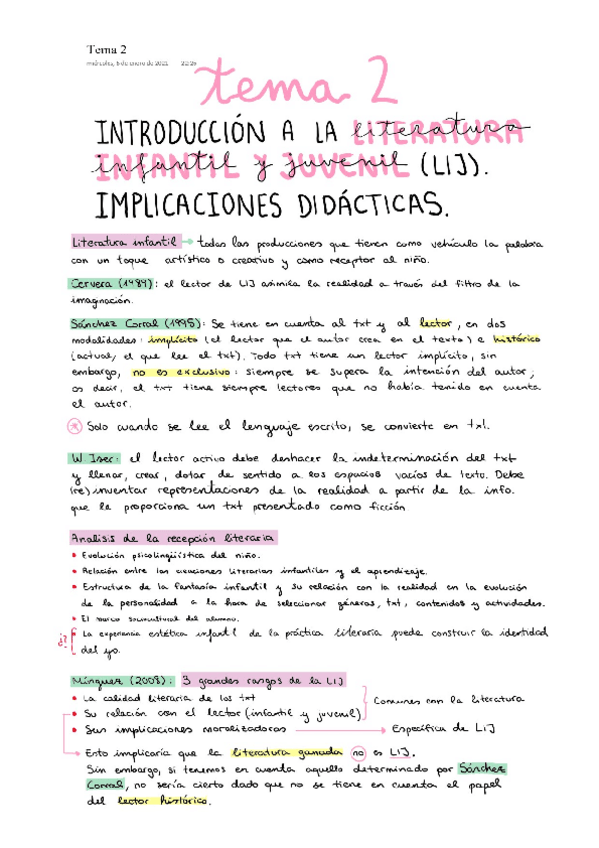 Tema 2
miércoles, 6 de enero de 2021
tema 2
INTRODUCCIÓN A LA literatura
infantil y juvenil (LIJ).
IMPLICACIONES DIDÁCTICAS.
Literatura infantil → todas las producciones que tienen como vehículo la palabra
con un toque artístico o creativo y como receptor al niño.
Cervera (1989): el lector de LIJ asimila la realidad a través del filtro de la
imaginación.
Sánchez Corral (1995): Se tiene en cuenta al txt y al lector, en dos
modalidades: implícito (el lector que el autor crea en el texto) e histórico
(actual, el que lee el txt). Todo txt tiene un lector implícito, sin
embargo, no es exclusivo: siempre se supera la intención del autor;
es decir, el txt tiene siempre lectores que no había tenido en cuenta
el autor.
* Solo cuando se lee el lenguaje escrito, se convierte en txt.
W Iser: el lector activo debe deshacer la indeterminación del txt
y llenar, crear, dotar de sentido a los espacios vacíos de texto. Debe
(re)inventar representaciones de la realidad a partir de la info.
que le proporciona un txt presentado como ficción
Análisis de la recepción literaria
• Evolución psicolingüística del niño.
• Relación entre las creaciones literarias infantiles y el aprendizaje.
• Estructura de la fantasía infantil y su relación con la realidad en la evolución
de la personalidad a la hora de seleccionar géneros, txt, contenidos y actividades.
• El marco sociocultural del alumno.
¿? • La experiencia estética infantil de la práctica literaria puede construir la identidad
del yo.
Mínguez (2008): 3 grandes rasgos de la LIJ
• La calidad literaria de los txt
• Su relación con el lector (infantil y juvenil) } Comunes con la literatura
• Sus implicaciones moralizadoras → Específica de LIJ
→ Esto implicaría que la literatura ganada no es LIJ.
Sin embargo, si tenemos en cuenta aquello determinado por Sánchez
Corral, no sería cierto dado que no se tiene en cuenta el papel
del lector histórico.